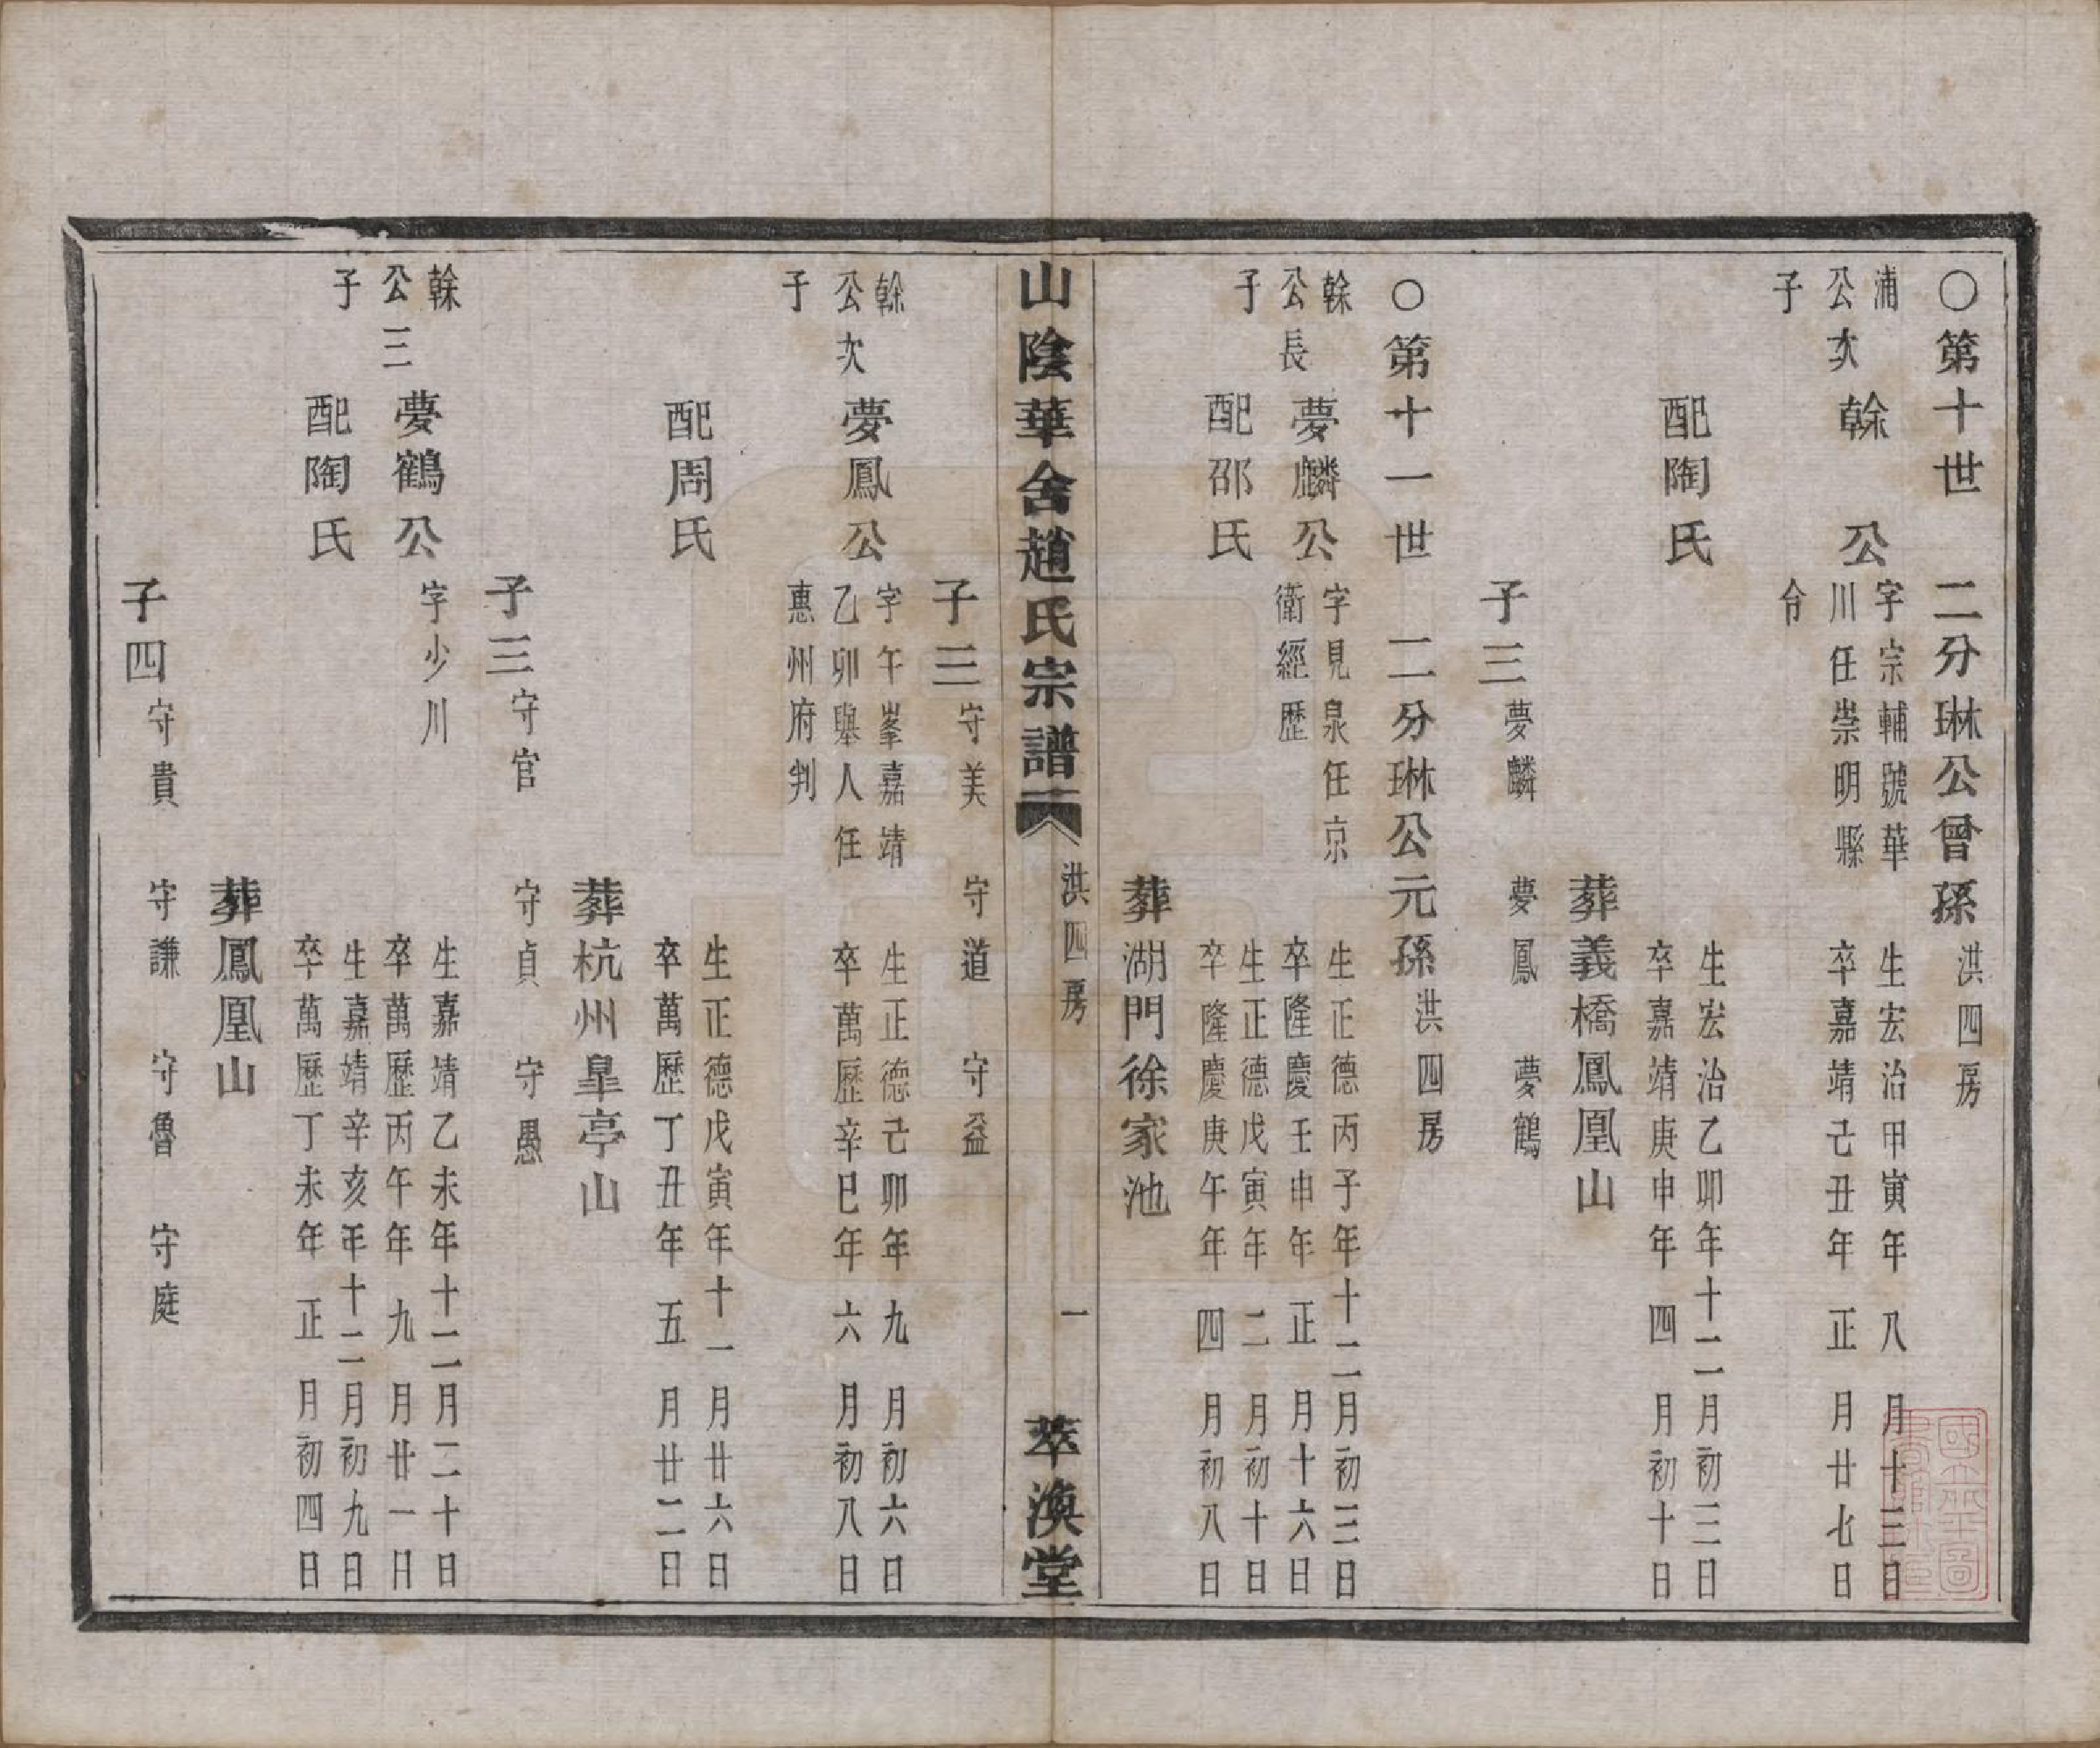 ○第十世　二分琳公曾孫　洪四房
浦公次子　榦公　字宗輔號華川任崇明縣令　生宏治甲寅年八月十三日　卒嘉靖己丑年正月廿七日
配陶氏　生宏治乙卯年十二月初三日　卒嘉靖庚申年四月初十日
葬義橋鳳凰山
子三　夢麟　夢鳳　夢鶴
○第十一世　二分琳公元孫　洪四房
榦公長子　夢麟公　字見泉任京衛經歷　生正德丙子年十二月初三日　卒隆慶壬申年正月十六日
配邵氏　生正德戊寅年二月初十日　卒隆慶庚午年四月初八日
葬湖門徐家池
山陰華舍趙氏宗譜　洪四房　一　萃渙堂
子三　守美　守道　守益
榦公次子　夢鳳公　字午峯嘉靖乙卯舉人任惠州府判　生正德己卯年九月初六日　卒萬歷辛巳年六月初八日
配周氏　生正德戊寅年十一月廿六日　卒萬歷丁丑年五月廿二日
葬杭州皐亭山
子三　守官　守貞　守愚
榦公三子　夢鶴公　字少川　生嘉靖乙未年十二月二十日　卒萬歷丙午年九月廿一日
配陶氏　生嘉靖辛亥年十二月初九日　卒萬歷丁未年正月初四日
葬鳳凰山
子四　守貴　守謙　守魯　守庭